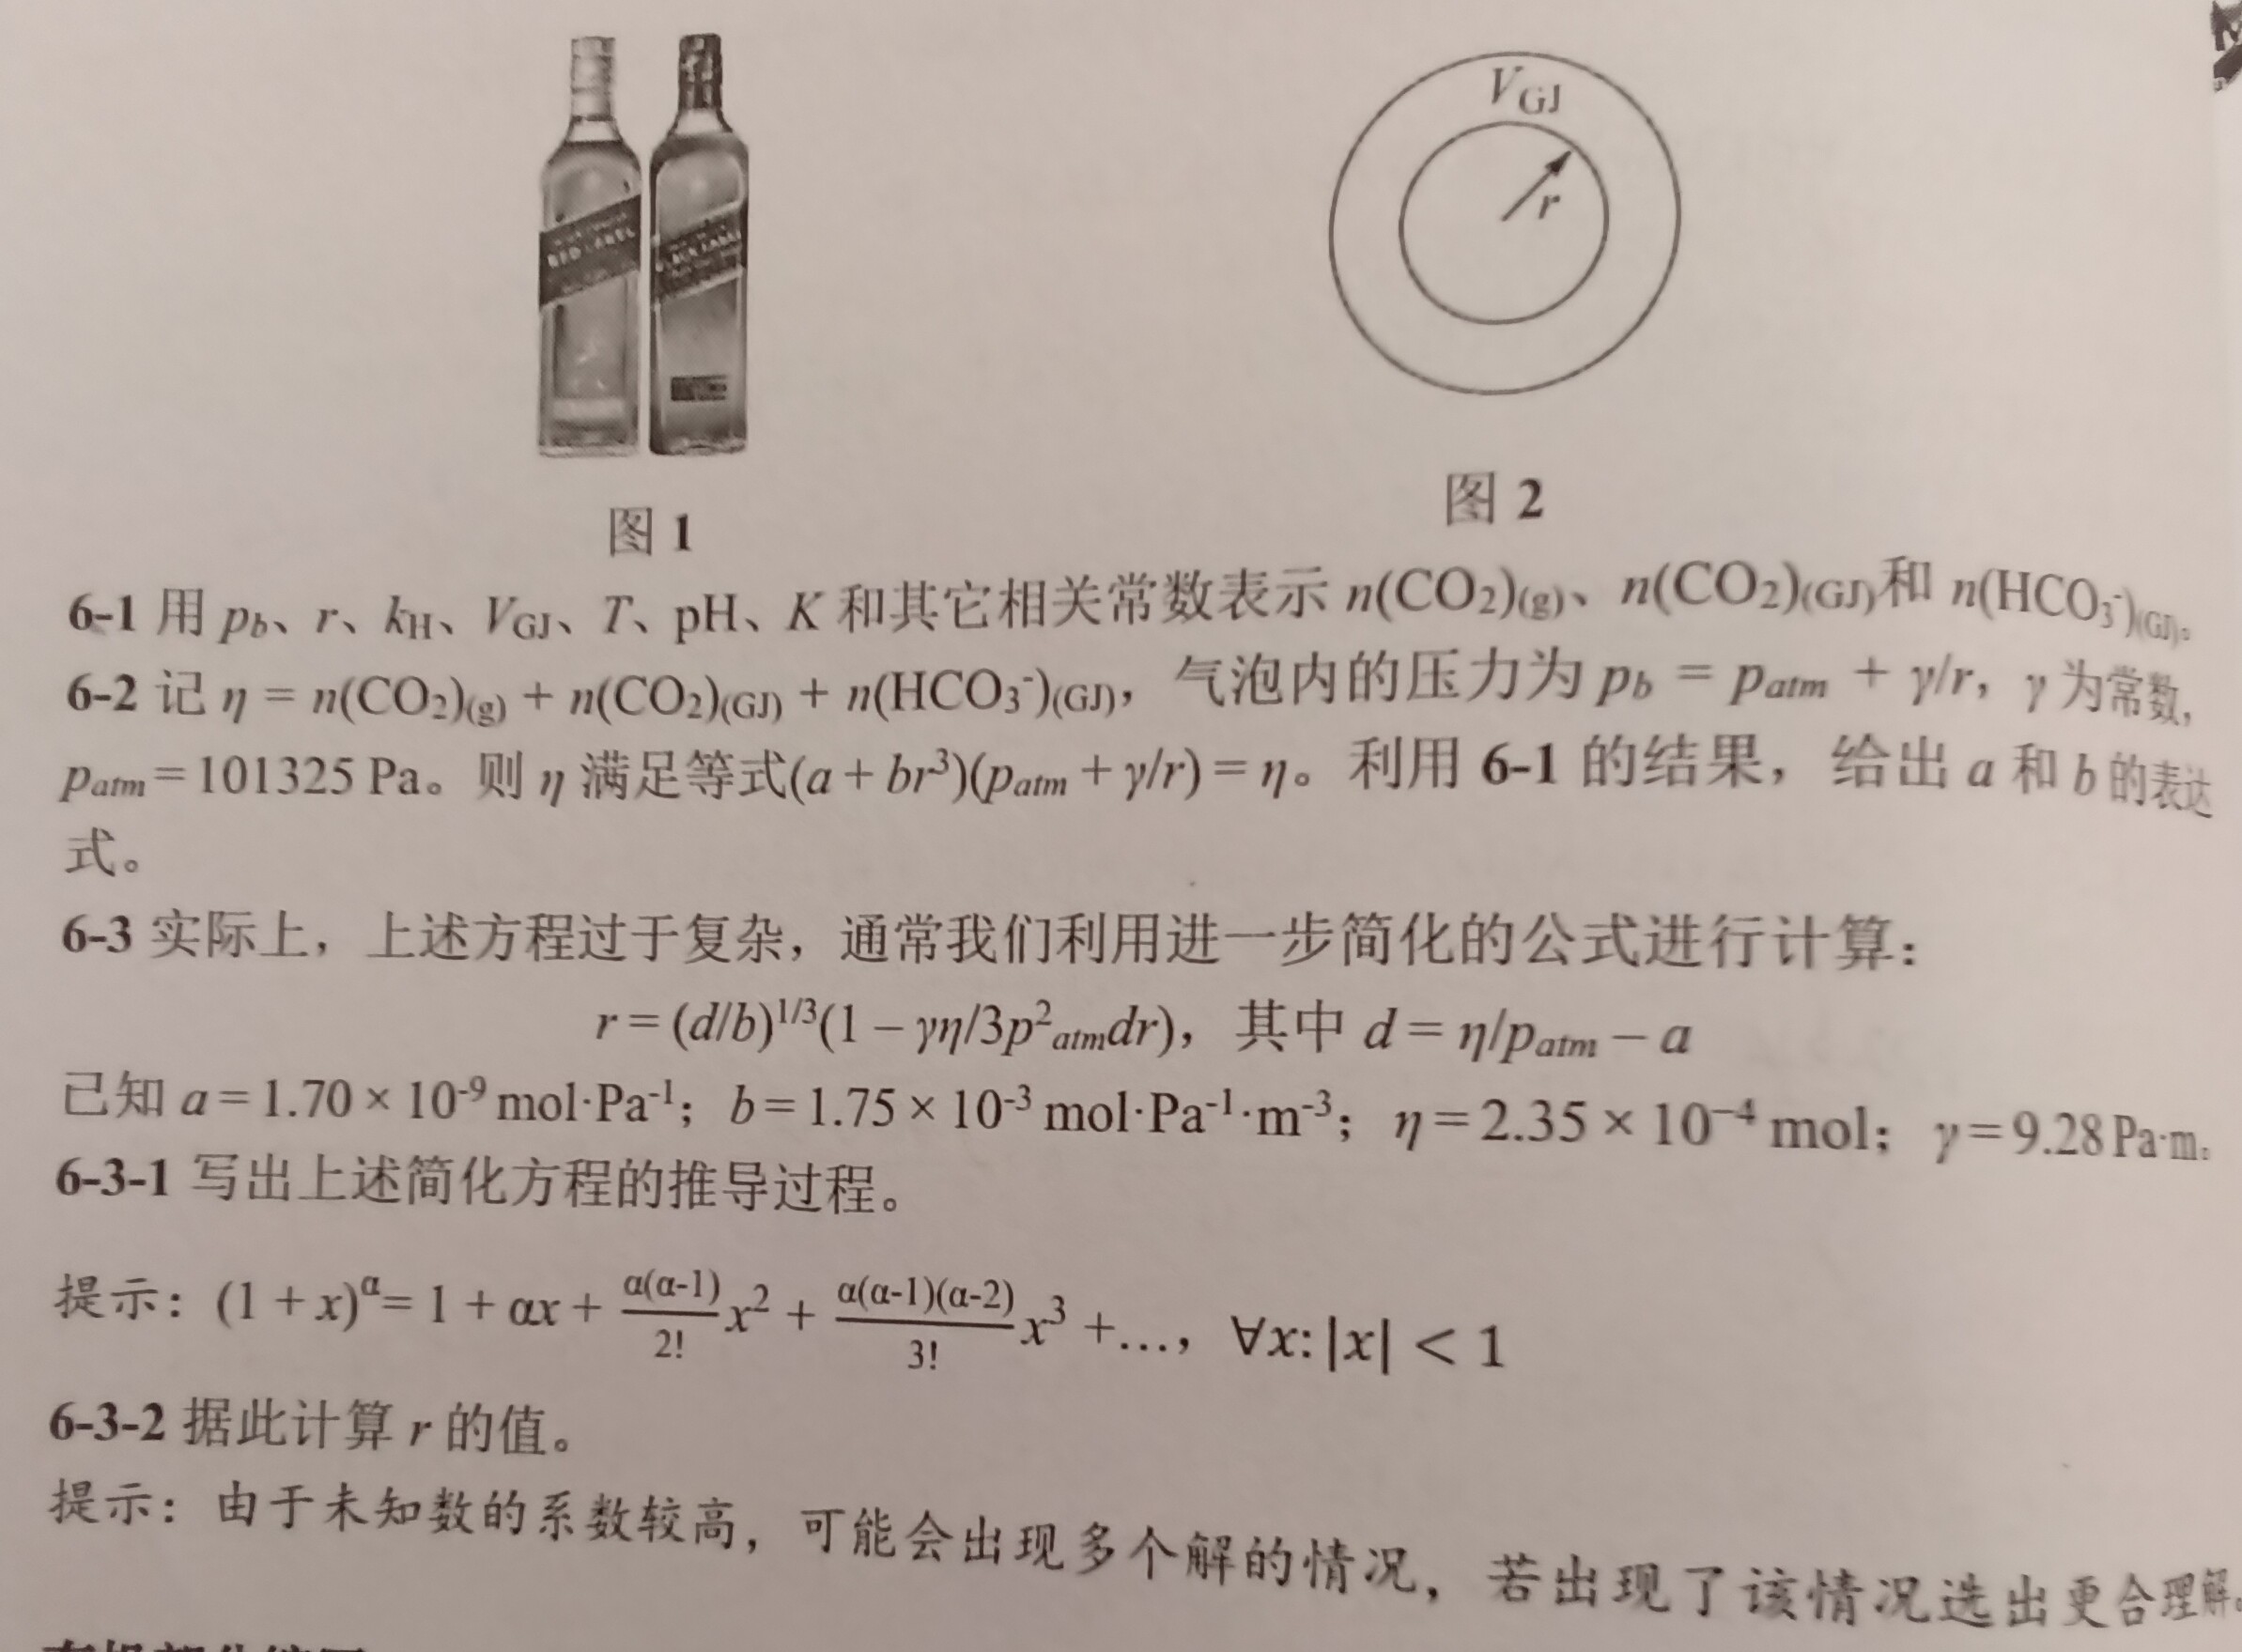 RED LABEL
V_GJ
r
图 1
图 2
6-1 用 p_b、r、k_H、V_GJ、T、pH、K 和其它相关常数表示 n(CO₂)(g)、n(CO₂)(GJ)和 n(HCO₃⁻)(GJ)。
6-2 记 η = n(CO₂)(g) + n(CO₂)(GJ) + n(HCO₃⁻)(GJ)， 气泡内的压力为 p_b = p_atm + γ/r，γ 为常数，
p_atm = 101325 Pa。则 η 满足等式(a + br³)(p_atm + γ/r) = η。利用 6-1 的结果，给出 a 和 b 的表达
式。
6-3 实际上，上述方程过于复杂，通常我们利用进一步简化的公式进行计算：
r = (d/b)^1/3(1 – γη/3p²_atm dr)，其中 d = η/p_atm – a
已知 a = 1.70 × 10⁻⁹ mol·Pa⁻¹；b = 1.75 × 10⁻³ mol·Pa⁻¹·m⁻³；η = 2.35 × 10⁻⁴ mol；γ = 9.28 Pa·m。
6-3-1 写出上述简化方程的推导过程。
提示：(1 + x)^α = 1 + αx + α(α-1)/2! x² + α(α-1)(α-2)/3! x³ +…，∀x: |x| < 1
6-3-2 据此计算 r 的值。
提示：由于未知数的系数较高，可能会出现多个解的情况，若出现了该情况选出更合理解。